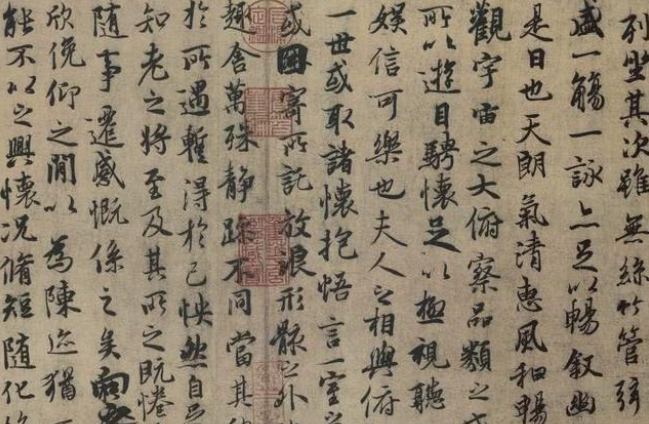 列坐其次雖無絲竹管弦
盛一觴一詠亦足以暢敘幽
是日也天朗氣清惠風和暢
觀宇宙之大俯察品類之
所以遊目騁懷足以極視聽
娛信可樂也夫人之相與俯
一世或取諸懷抱悟言一室
或因寄所託放浪形骸之外
趣舍萬殊靜躁不同當其
於所遇暫得於己怏然自
知老之將至及其所之既惓
隨事遷感慨係之矣向
欣俛仰之閒以為陳迹猶
能不以之興懷況脩短隨化